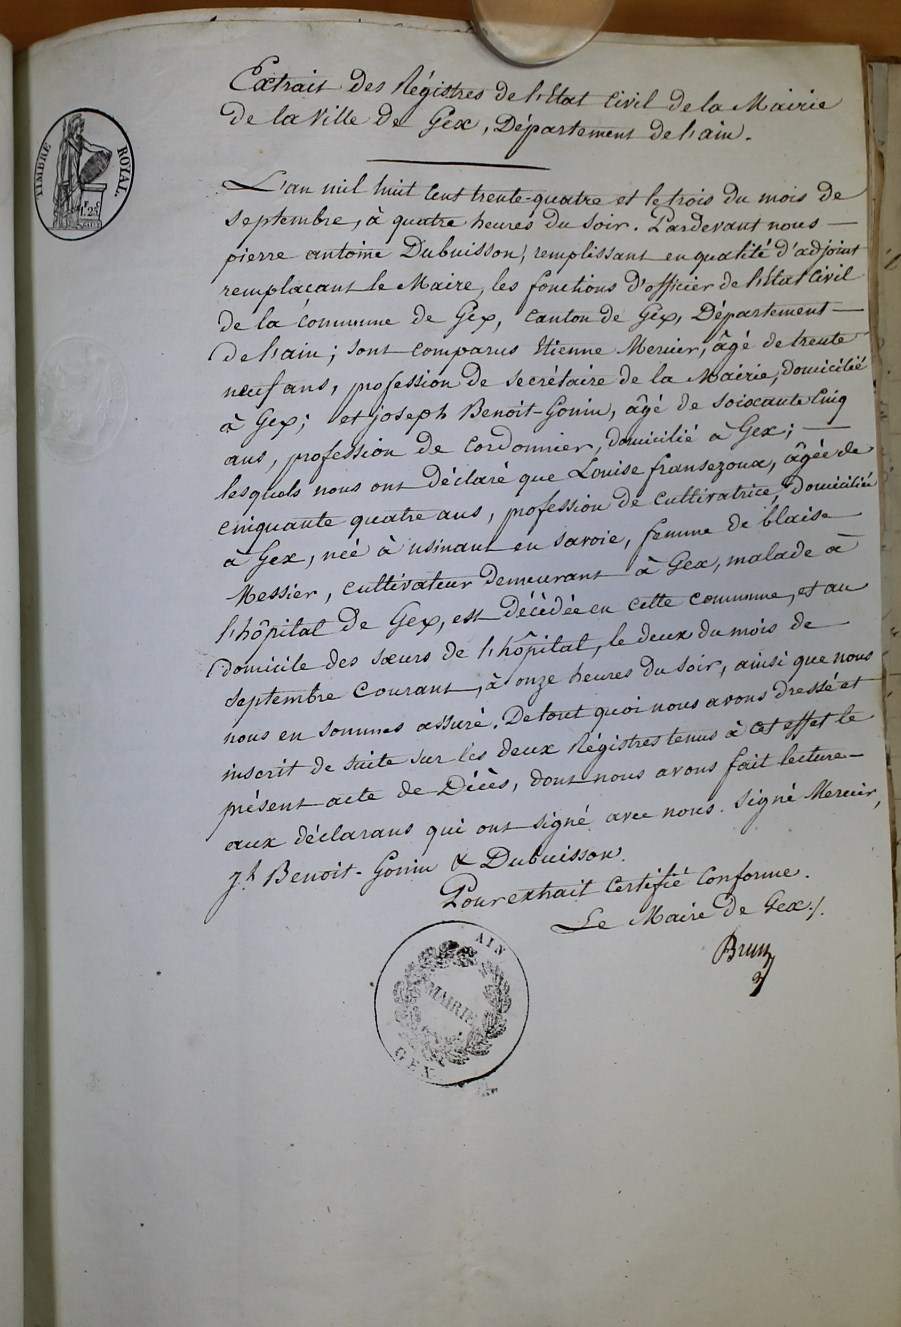 Extrait des Régistres de l'Etat Civil de la Mairie
de la Ville de Gex, Département de l'ain.
TIMBRE ROYAL
L'an mil huit cent trente-quatre et le trois du mois de
septembre, à quatre heures du soir. Pardevant nous
pierre antoine Dubuisson, remplissant en qualité d'adjoint
remplaçant le Maire, les fonctions d'officier de l'Etat Civil
de la commune de Gex, canton de Gex, Département
de l'ain; sont comparus Etienne Mercier, âgé de trente
neuf ans, profession de secrétaire de la Mairie, domicilié
à Gex; et joseph Benoit-Gonin, âgé de soixante Cinq
ans, profession de cordonnier, domicilié à Gex;
lesquels nous ont déclaré que Louise fransezoux, âgée de
cinquante quatre ans, profession de cultivatrice, domiciliée
à Gex, née à usinant en savoie, femme de blaise
Messier, cultivateur demeurant à Gex, malade à
l'hôpital de Gex, est décédée en cette commune, et au
domicile des sœurs de l'hôpital, le deux du mois de
septembre courant, à onze heures du soir, ainsi que nous
nous en sommes assuré. De tout quoi nous avons dressé et
inscrit de suite sur les deux Régistres tenus à cet effet le
présent acte de Décès, dont nous avons fait lecture
aux déclarans qui ont signé avec nous. Signé Mercier,
jh Benoit-Gonin & Dubuisson.
Pour extrait Certifié Conforme.
Le Maire de Gex./.
Brun
AIN
MAIRIE
GEX